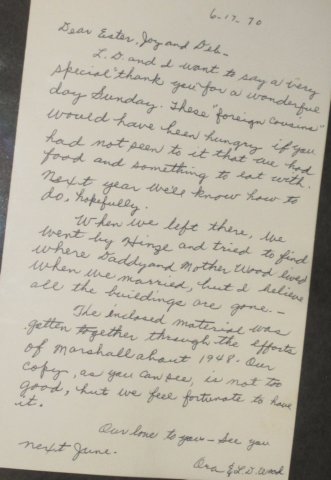 6-17-70
Dear Ester, Joy and Deb-
L.D. and I want to say a very
special "thank you" for a wonderful
day Sunday. These "foreign cousins"
would have been hungry if you
had not seen to it that we had
food and something to eat with.
Next year we'll know how to
do, hopefully.
When we left there, we
went by Hinze and tried to find
where Daddy and Mother Wood lived
when we married, but I believe
all the buildings are gone.-
The enclosed material was
gotten together through the efforts
of Marshall about 1948. Our
copy, as you can see, is not too
good, but we feel fortunate to have
it.
Our love to you - See you
next June.
Ora & L.D. Wood